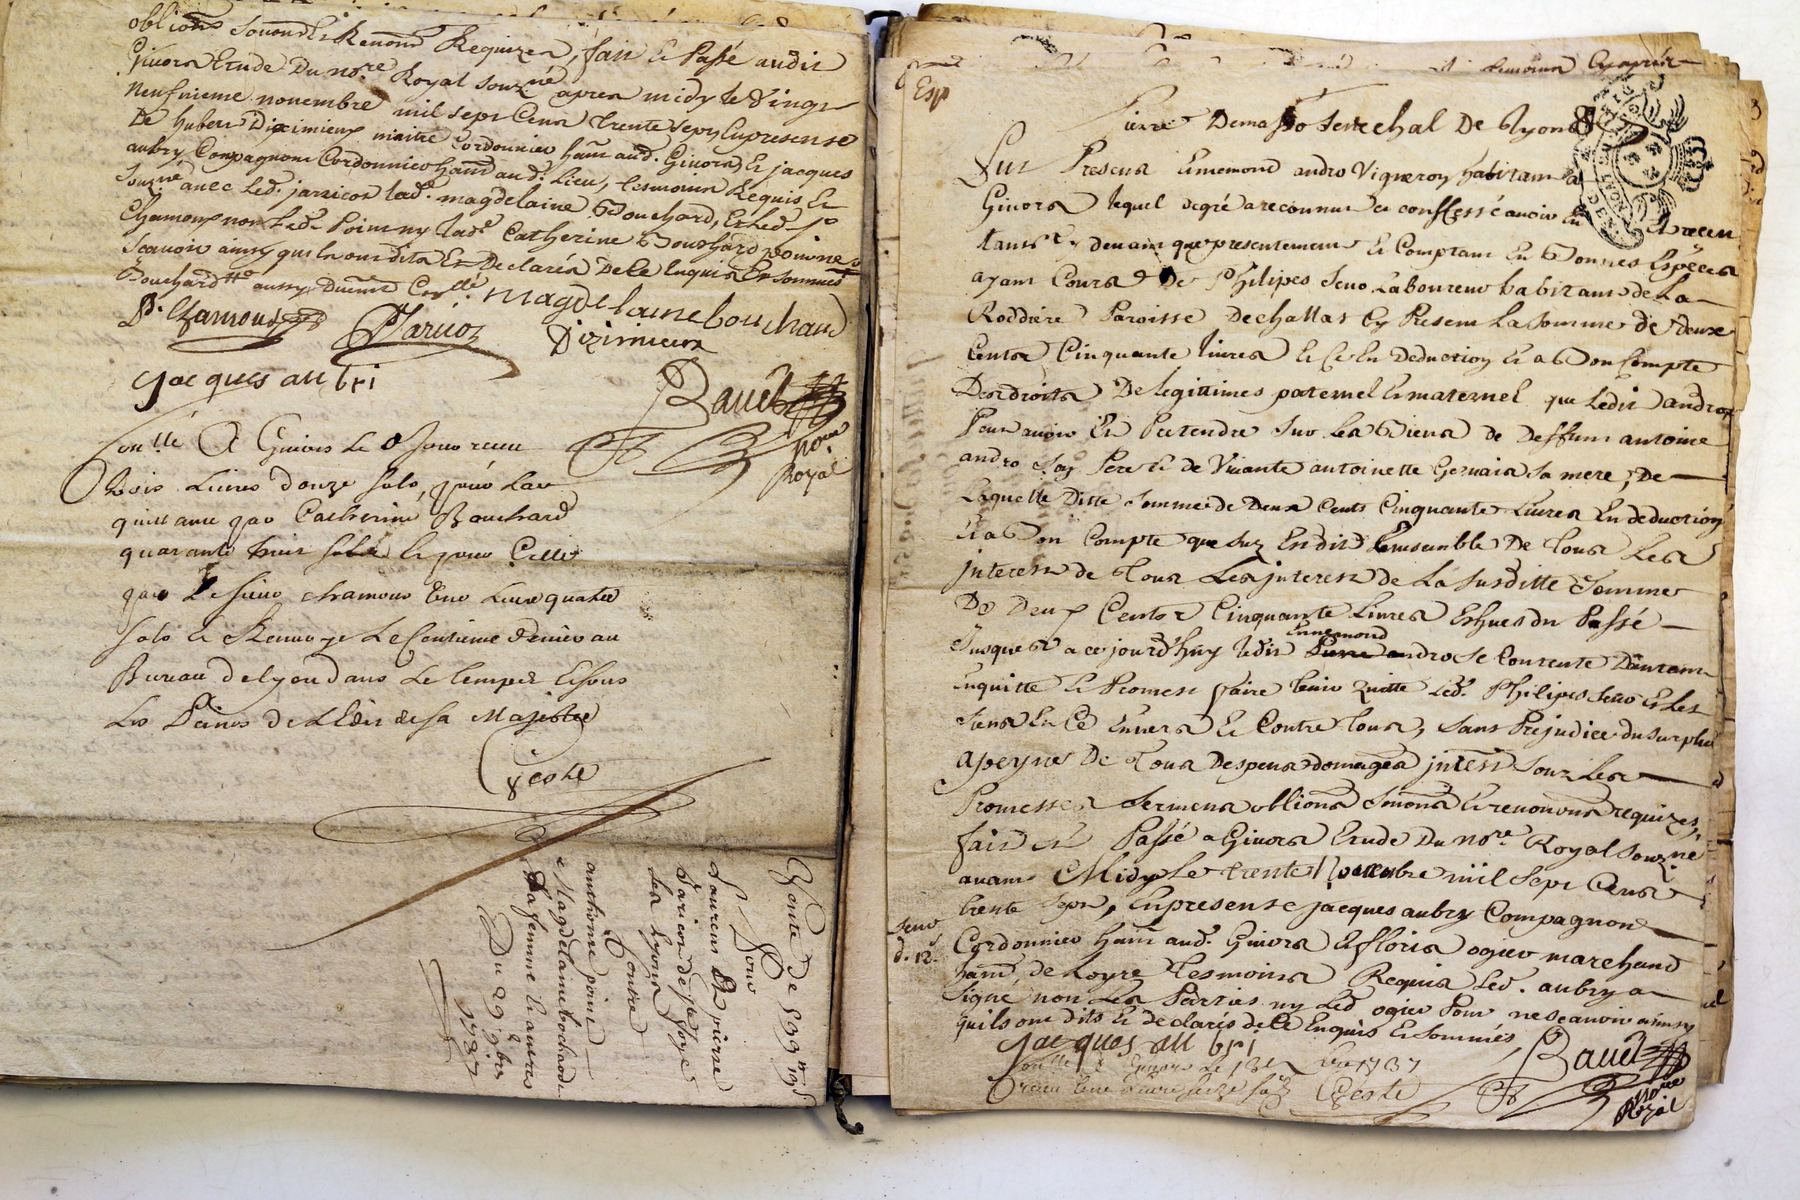 oblions soumons Renons Requizes, fait et Passé audit
Givors Etude Du no.re Royal souz.né apres midy le vingt
neufvieme novembre mil sept Cens trente sept En presense
De hubert Dizimieux maitre Cordonnier ham aud. Givors Et jacques
aubry Compagnon Cordonnier ham aud. Lieu, tesmoins Requis Et
souz.né avec led. jarricot lad.e magdelaine Bouchard, Et led. s.r
Chamoux non led. Poin ny lad.e Catherine Bouchard
Scavoir ainsy qu'ils ont dit Et Declarés De ce Enquis Et sommés
Bouchard
Chamoux
Jaricot
magdelaine bouchard
Dizimieux
jacques au bri
Bauet
No.re
Royal
Con.llé A Givors Le Jour recu
trois Livres douze sols, pour la
quittance par Catherine Bouchard
quarante huit sols Et pour Celle
par Le sieur chamoux une Livre quatre
sols Et Renvoye Le Centieme denier au
Bureau de Lyon dans Le temps Et sous
Les Peines de L'Edit de sa Majesté
Geste
Quitt.ce de 533
Pour
Laurens Et pierre
Jaricot de
Contre
anthoine poin
Magdelaine bochard
Sa femme Et autres
Du 29 9bre
1737
Esp
tesmoins Cy apres
Pierre Demasso Senechal De Lyon
Fut Present Ennemond andro Vigneron habitant a
Givors lequel de gré a reconnu et conffessé avoir Eu Et receu
tant Cy devant que presentement Et Comptant En Bonnes Espèces
ayant Cours De Philipes Seuo Laboureur habitant de La
Roddiére Paroisse De challas Cy Present La somme de deux
Cents Cinquante livres Et Ce En Deduction Et a Bon Compte
Des droits De legittimes paternel Et maternel que Ledit andro
Peut avoir Et Pretendre sur Les Biens de Deffunt antoine
andro son Pere Et de Vivante antoinette Gervais sa mere; De
Laquelle Ditte somme de Deux Cents Cinquante Livres En deduction
Et a Bon Compte que sus Et dit Et ensemble De tous Les
jnterest de tous Les jnterest de La susditte somme
De Deux Cents Cinquante Livres Eshues du Passé
Jusques a ce jourd'huy ledit Pierre Ennemond andro se Contente D'autant
Enquitte Et Promest faire tenir quitte Led. Philipes Seuo Et Les
siens En Ce Envers Et Contre tous, sans Préjudice du surplus
a peyne De tous Despens domages jnterest souz Les
Promesses sermens oblions soumons Et renons requizes,
fait Et Passé a Givors Etude Du no.re Royal souz.né
avant Midy Le trente Novembre mil sept Cens
trente sept, En presense jacques aubry Compagnon
Cordonnier ham aud. Givors Et floris ogier marchand
ham de Loyre tesmoins Requis Led. aubry a
signé non Les Parties ny Led. ogier Pour ne scavoir ainsy
qu'ils ont dits Et declarés de Ce Enquis Et sommés
Seuo
d. 12.
jacques au bri
Bauet
No.re
Royal
Con.llé a Givors Le 1737
recu une Livre seize sols Geste